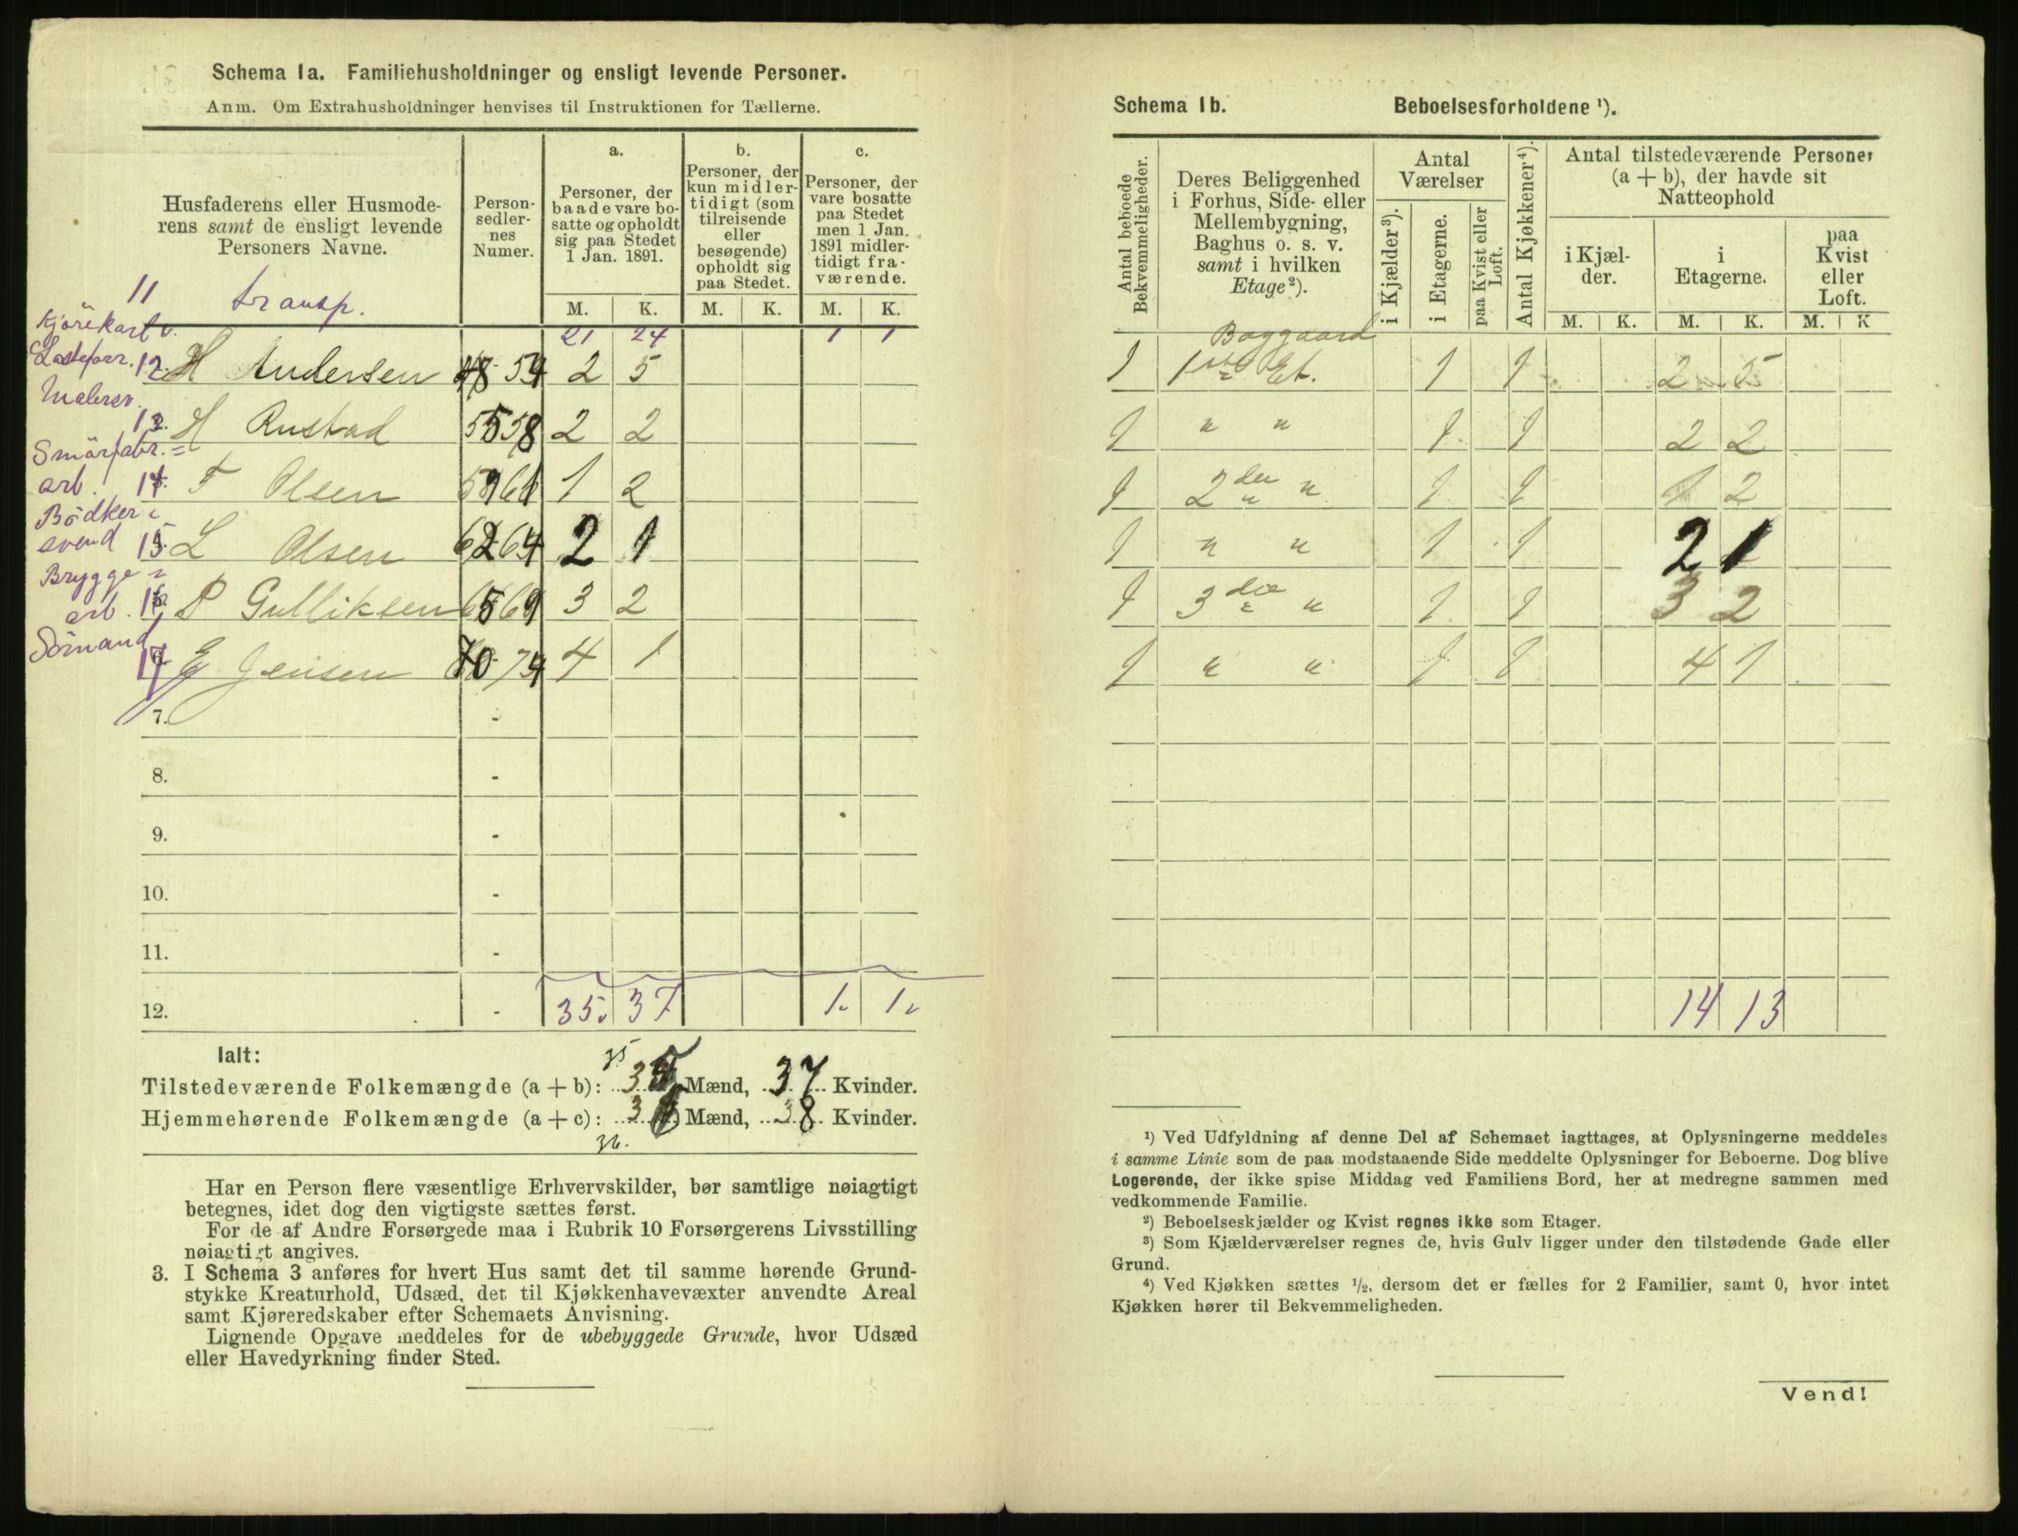 Schema 1a. Familiehusholdninger og ensligt levende Personer.
Anm. Om Extrahusholdninger henvises til Instruktionen for Tællerne.
Husfaderens eller Husmoderens samt de ensligt levende Personers Navne.
Personsedlernes Numer.
a. Personer, der baade vare bosatte og opholdt sig paa Stedet 1 Jan. 1891.
b. Personer, der kun midlertidigt (som tilreisende eller besøgende) opholdt sig paa Stedet.
c. Personer, der vare bosatte paa Stedet men 1 Jan. 1891 midlertidigt fraværende.
M. K. M. K. M. K.
11 transp. 21 24 1 1
Kjörekarl
12. H Andersen 48 54 2 5
Malersv.
13. H Rustad 55 58 2 2
Smörfabr. arb.
14 F Olsen 59 61 1 2
Bödker svend
15 L Olsen 62 64 2 1
Brygge arb.
16 P Gulliksen 65 69 3 2
Sömand
17 E Jensen 70 74 4 1
7. -
8. -
9. -
10. -
11. -
12. - 35. 37 1. 1.
Ialt:
35
Tilstedeværende Folkemængde (a + b): 35 Mænd, 37 Kvinder.
Hjemmehørende Folkemængde (a + c): 36 Mænd, 38 Kvinder.
36.
Har en Person flere væsentlige Erhvervskilder, bør samtlige nøiagtigt
betegnes, idet dog den vigtigste sættes først.
For de af Andre Forsørgede maa i Rubrik 10 Forsørgerens Livsstilling
nøiagtigt angives.
3. I Schema 3 anføres for hvert Hus samt det til samme hørende Grund-
stykke Kreaturhold, Udsæd, det til Kjøkkenhavevæxter anvendte Areal
samt Kjøreredskaber efter Schemaets Anvisning.
Lignende Opgave meddeles for de ubebyggede Grunde, hvor Udsæd
eller Havedyrkning finder Sted.
Schema 1b. Beboelsesforholdene ¹).
Antal beboede Bekvemmeligheder.
Deres Beliggenhed i Forhus, Side- eller Mellembygning, Baghus o. s. v. samt i hvilken Etage²).
Antal Værelser
i Kjælder³).
i Etagerne.
paa Kvist eller Loft.
Antal Kjøkkener⁴).
Antal tilstedeværende Personer (a + b), der havde sit Natteophold
i Kjælder.
i Etagerne.
paa Kvist eller Loft.
M. K. M. K. M. K
Baggaard
1 1ste Et. 1 1 2 5
1 " " 1 1 2 2
1 2den " 1 1 1 2
1 " " 1 1 2 1
1 3die " 1 1 3 2
1 " " 1 1 4 1
14 13
¹) Ved Udfyldning af denne Del af Schemaet iagttages, at Oplysningerne meddeles
i samme Linie som de paa modstaaende Side meddelte Oplysninger for Beboerne. Dog blive
Logerende, der ikke spise Middag ved Familiens Bord, her at medregne sammen med
vedkommende Familie.
²) Beboelseskjælder og Kvist regnes ikke som Etager.
³) Som Kjælderværelser regnes de, hvis Gulv ligger under den tilstødende Gade eller
Grund.
⁴) Ved Kjøkken sættes ½, dersom det er fælles for 2 Familier, samt 0, hvor intet
Kjøkken hører til Bekvemmeligheden.
Vend!